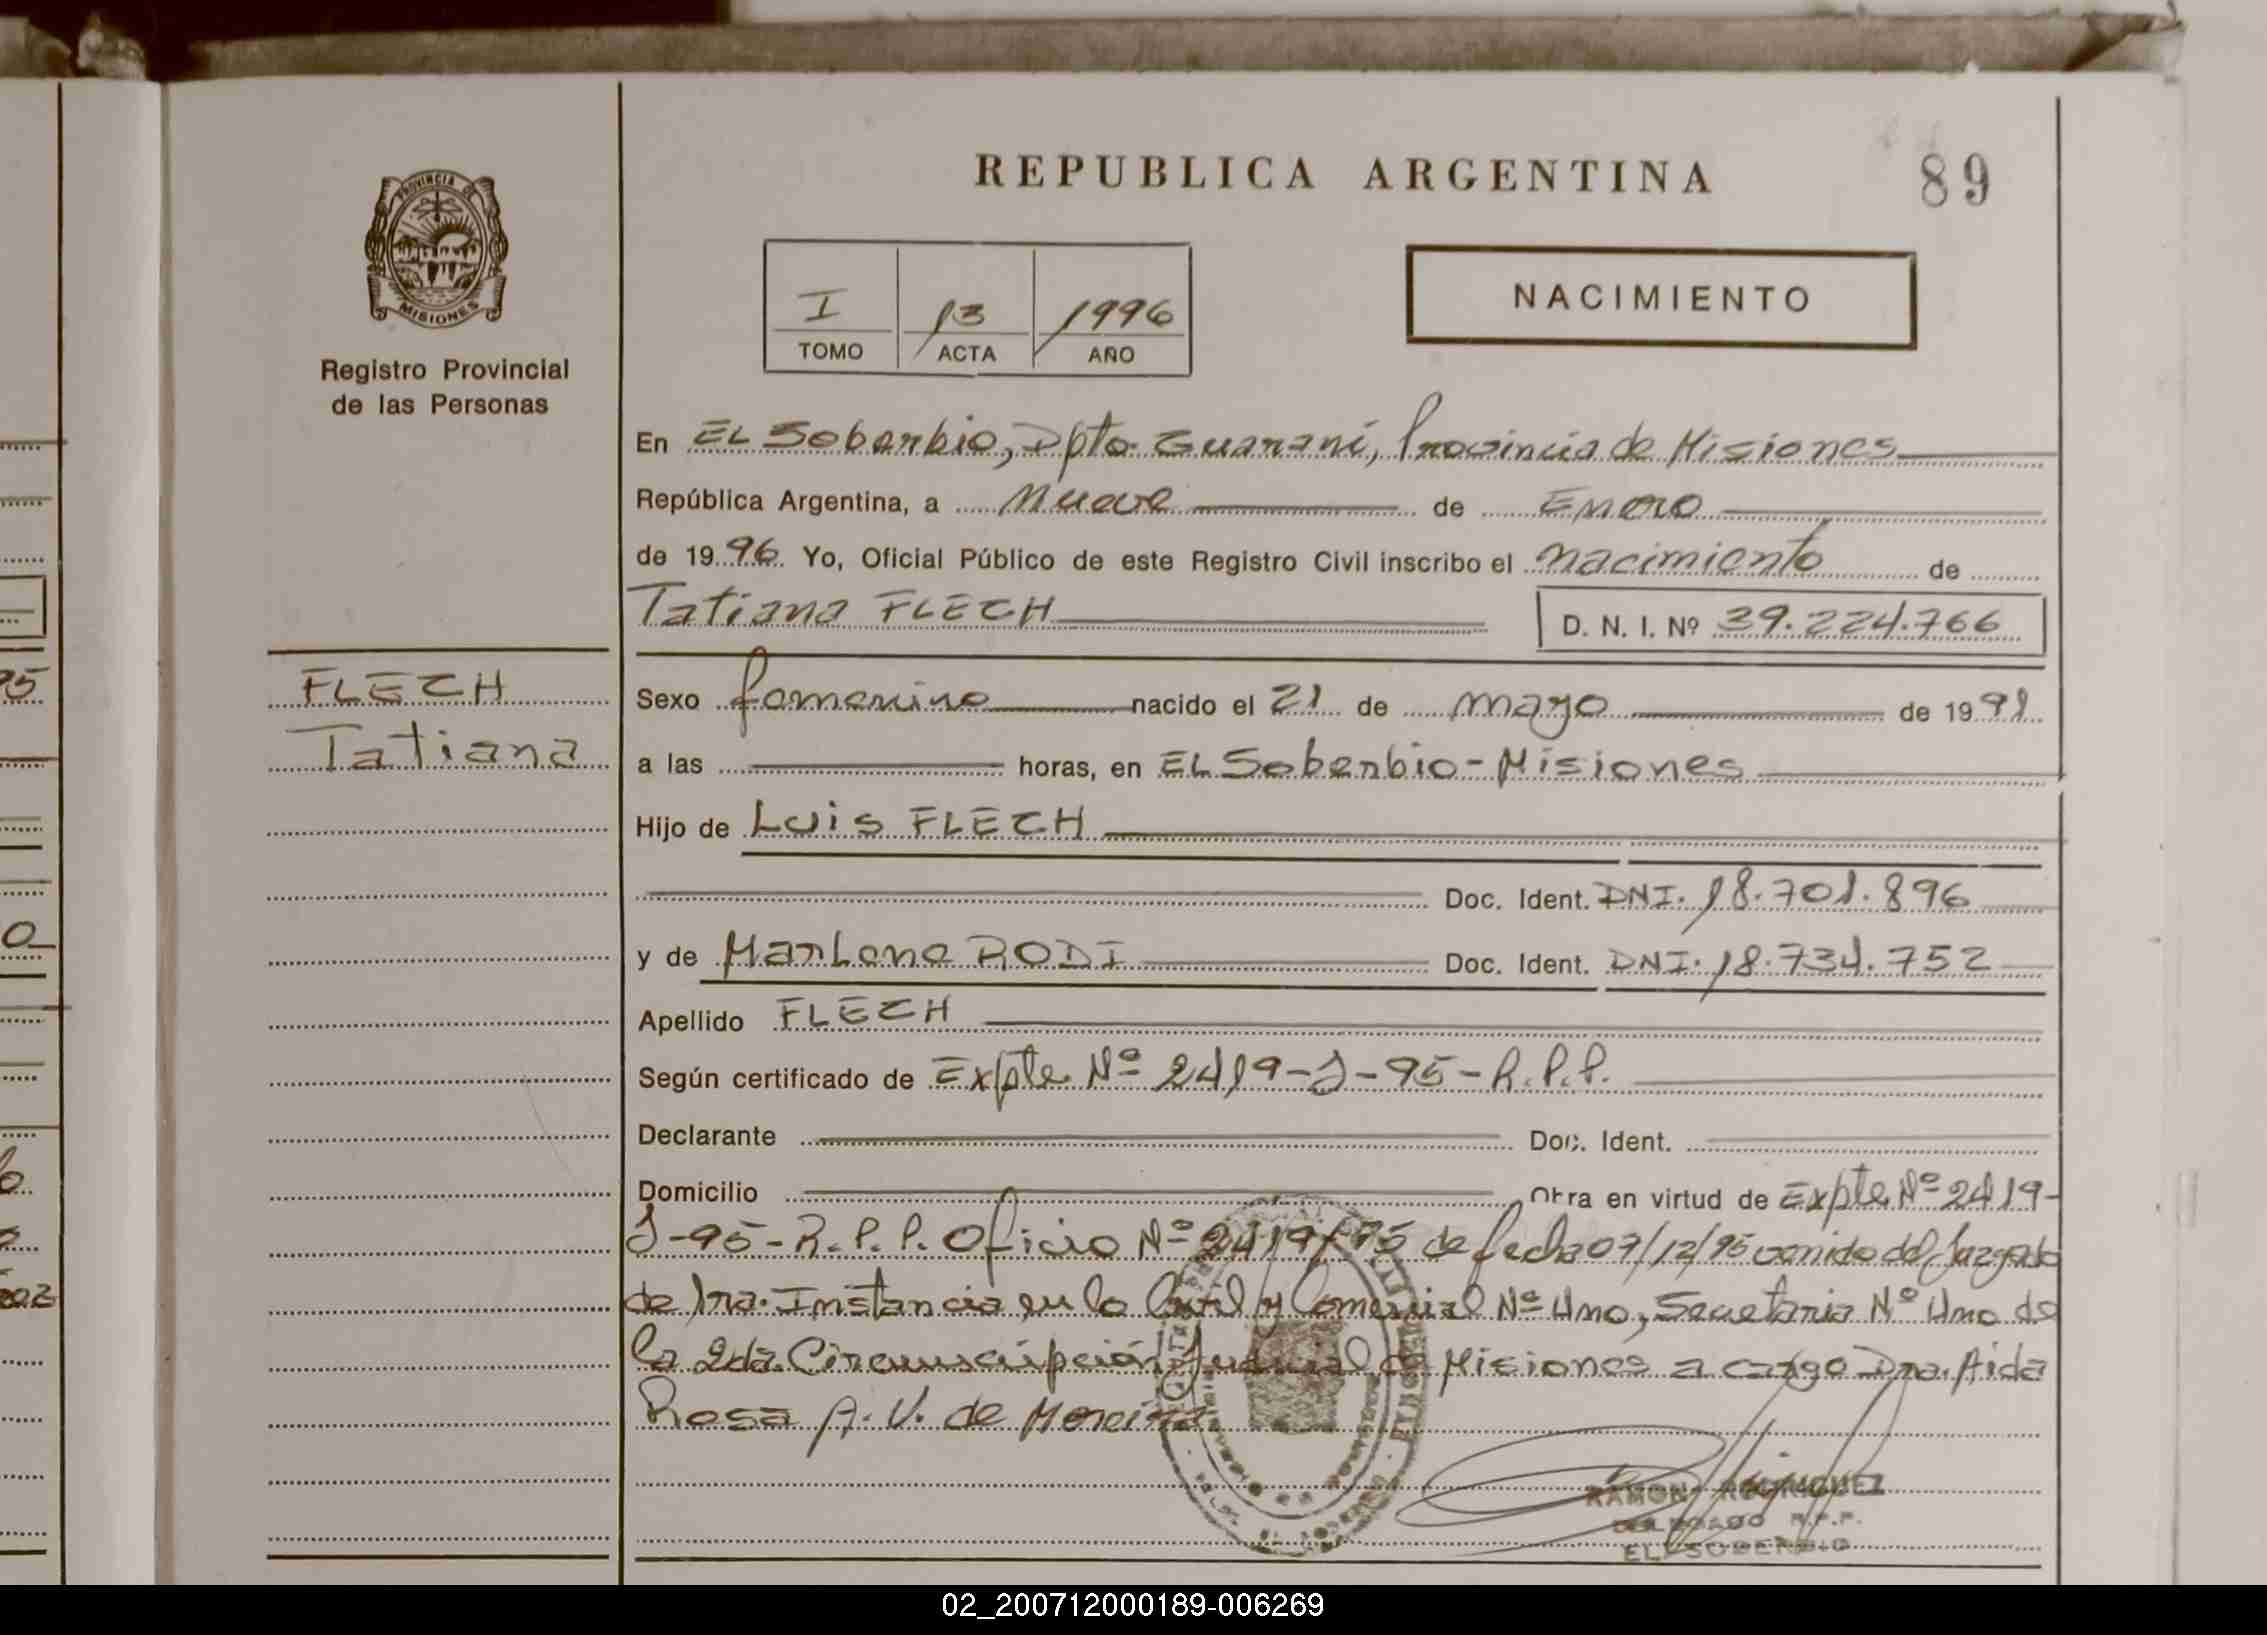 REPUBLICA ARGENTINA
89
PROVINCIA DE
MISIONES
Registro Provincial
de las Personas
I
13
1996
TOMO
ACTA
AÑO
NACIMIENTO
En EL Soberbio, Dpto Guaraní, Provincia de Misiones
República Argentina, a Nueve de Enero
de 1996. Yo, Oficial Público de este Registro Civil inscribo el nacimiento de
Tatiana FLECH
D. N. I. Nº 39.224.766
FLECH
Tatiana
Sexo femenino nacido el 21 de mayo de 1991
a las horas, en EL Soberbio - Misiones
Hijo de Luis FLECH
Doc. Ident. DNI. 18.701.896
y de Marlene RODI Doc. Ident. DNI. 18.734.752
Apellido FLECH
Según certificado de Expte Nº 2419-J-95-R.P.P.
Declarante Doc. Ident.
Domicilio Obra en virtud de Expte Nº 2419-
J-95-R.P.P. Oficio Nº 2419/95 de fecha 07/12/95 venido del Juzgado
de 1ra. Instancia en lo Civil y Comercial Nº Uno, Secretaria Nº Uno de
la 2da. Circunscripción Judicial de Misiones a cargo Dra. Aida
Rosa A. V. de Moreira
RAMON RODRIGUEZ
DELEGADO R.P.P.
EL SOBERBIO
02_200712000189-006269